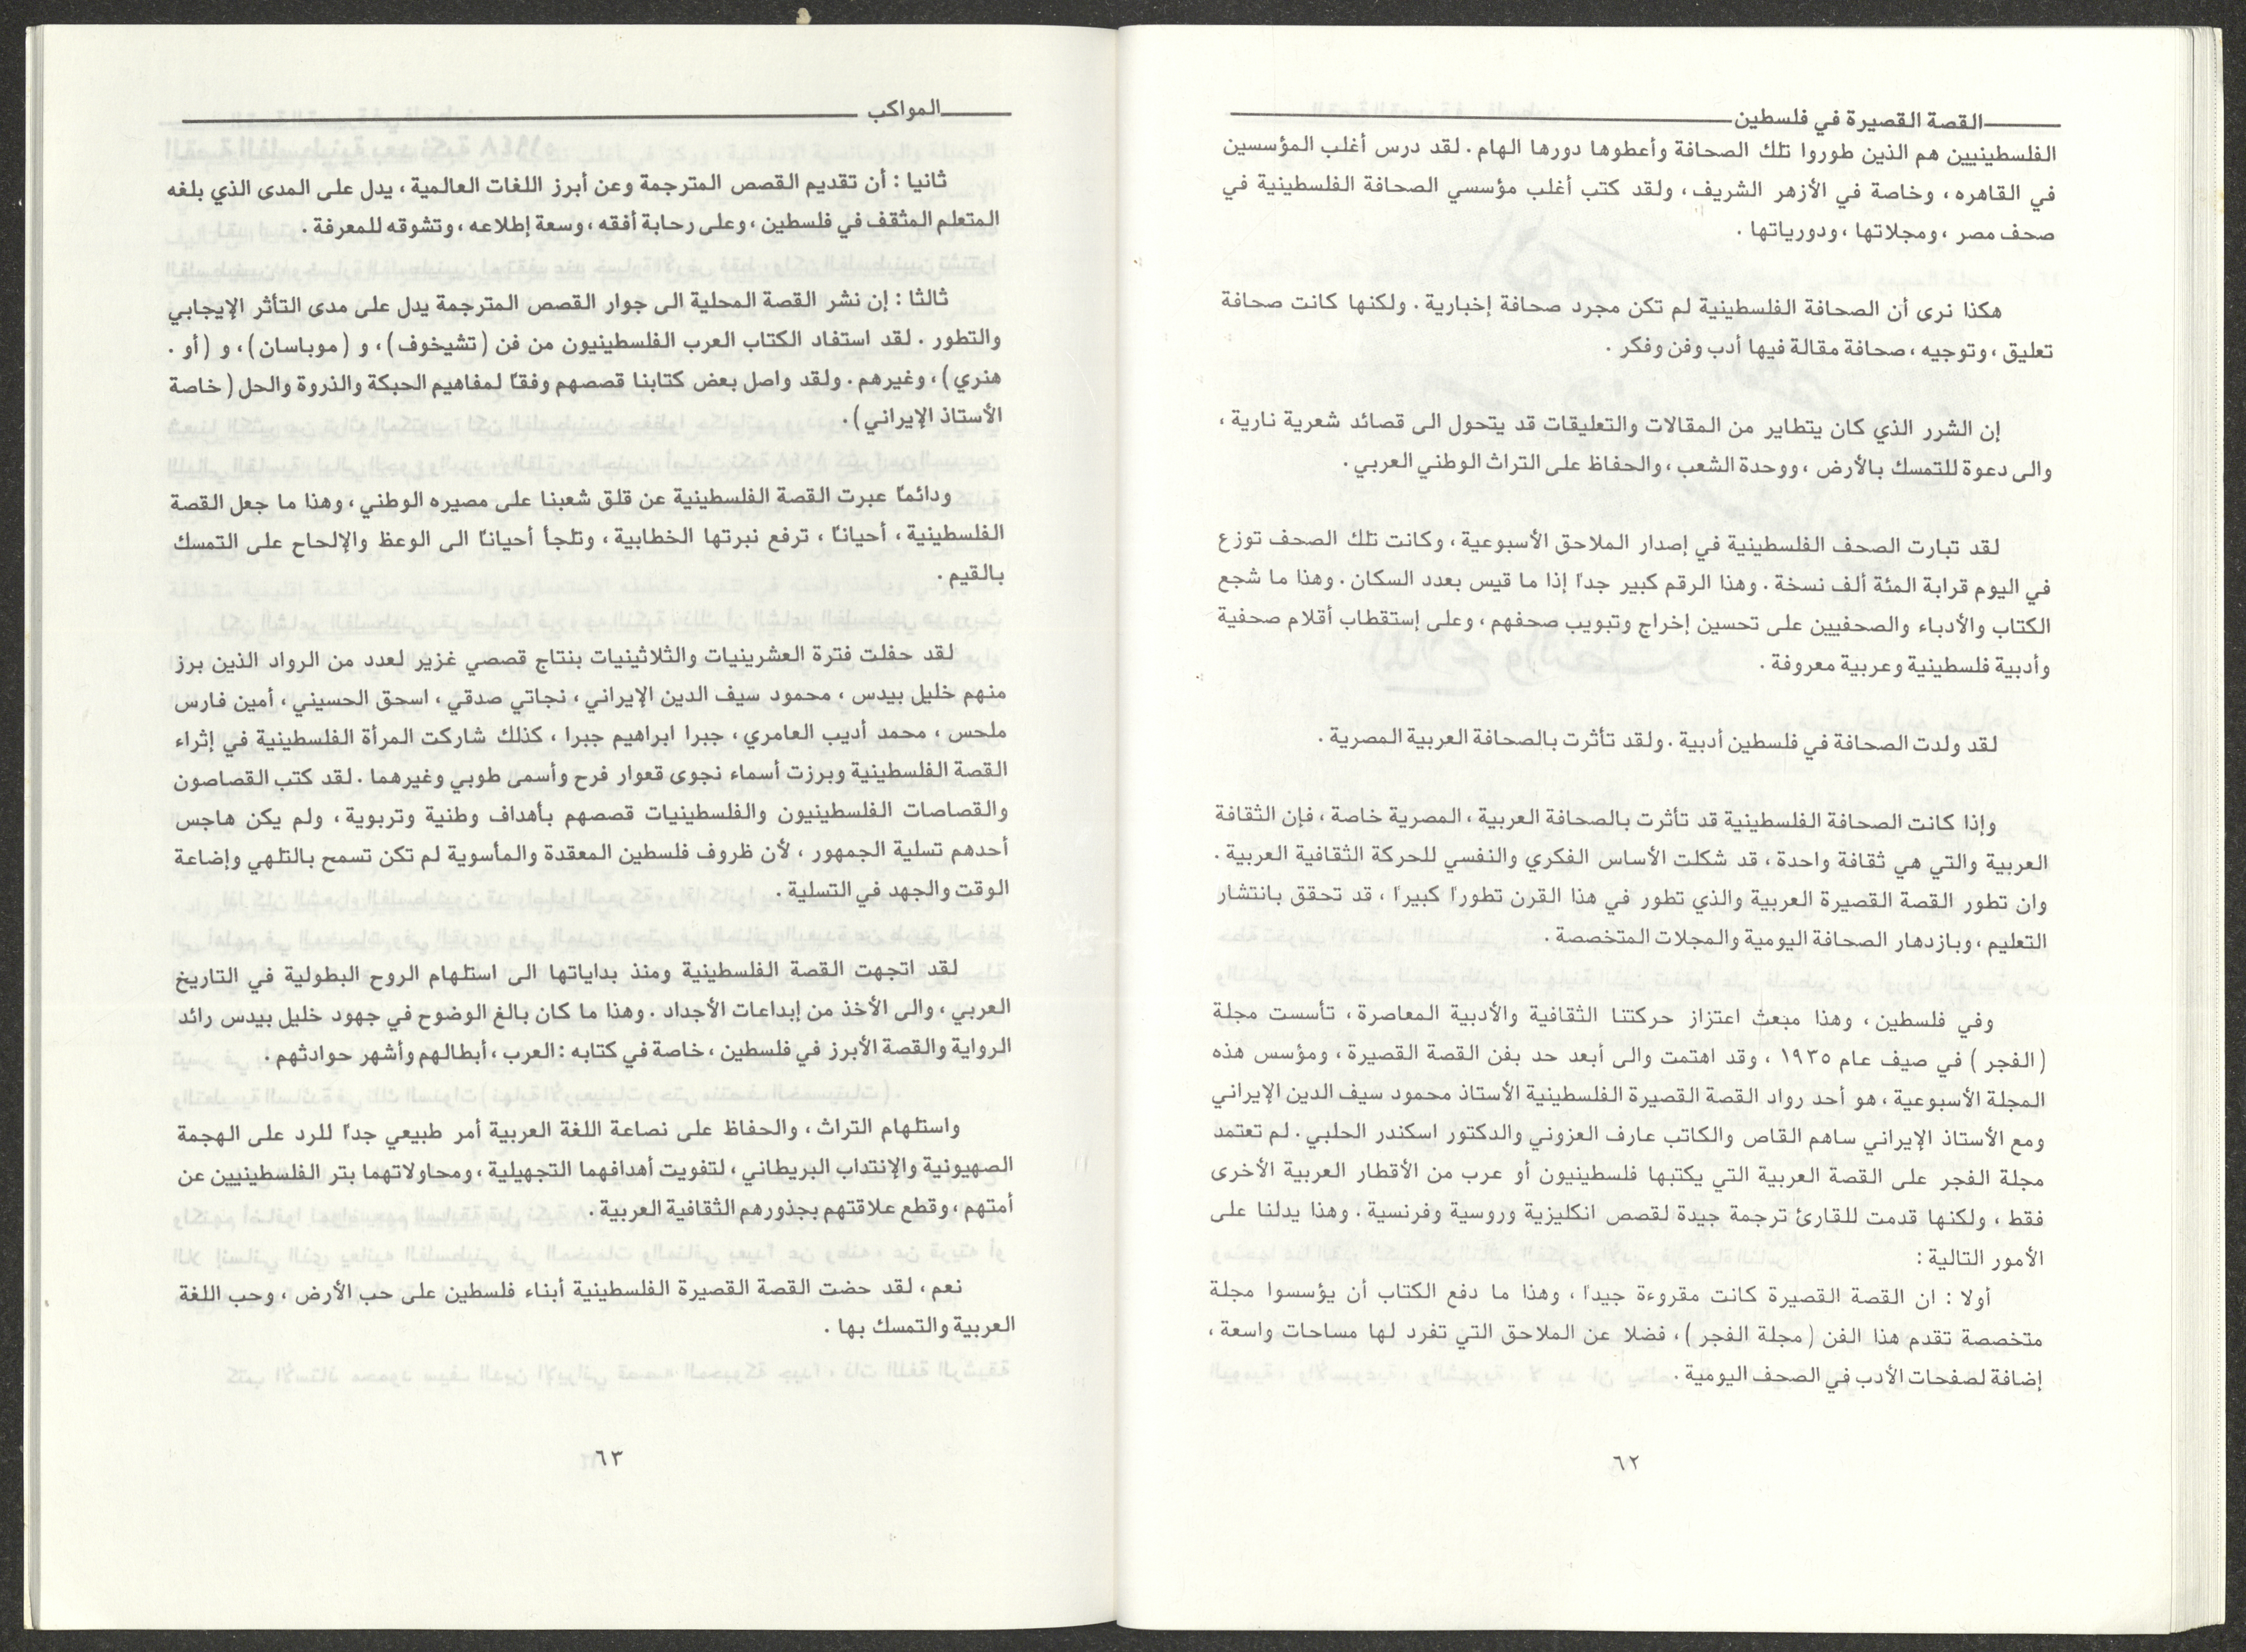 القصة القصيرة في فلسطين
الفلسطينيين هم الذين طوروا تلك الصحافة وأعطوها دورها الهام . لقد درس أغلب المؤسسين
في القاهره ، وخاصة في الأزهر الشريف ، ولقد كتب أغلب مؤسسي الصحافة الفلسطينية في
صحف مصر ، ومجلاتها ، ودورياتها .
هكذا نرى أن الصحافة الفلسطينية لم تكن مجرد صحافة إخبارية . ولكنها كانت صحافة
تعليق ، وتوجيه ، صحافة مقالة فيها أدب وفن وفكر .
إن الشرر الذي كان يتطاير من المقالات والتعليقات قد يتحول الى قصائد شعرية نارية ،
والى دعوة للتمسك بالأرض ، ووحدة الشعب ، والحفاظ على التراث الوطني العربي .
لقد تبارت الصحف الفلسطينية في إصدار الملاحق الأسبوعية ، وكانت تلك الصحف توزع
في اليوم قرابة المئة ألف نسخة . وهذا الرقم كبير جداً إذا ما قيس بعدد السكان . وهذا ما شجع
الكتاب والأدباء والصحفيين على تحسين إخراج وتبويب صحفهم ، وعلى إستقطاب أقلام صحفية
وأدبية فلسطينية وعربية معروفة .
لقد ولدت الصحافة في فلسطين أدبية . ولقد تأثرت بالصحافة العربية المصرية .
وإذا كانت الصحافة الفلسطينية قد تأثرت بالصحافة العربية ، المصرية خاصة ، فإن الثقافة
العربية والتي هي ثقافة واحدة ، قد شكلت الأساس الفكري والنفسي للحركة الثقافية العربية .
وان تطور القصة القصيرة العربية والذي تطور في هذا القرن تطوراً كبيراً ، قد تحقق بانتشار
التعليم ، وبازدهار الصحافة اليومية والمجلات المتخصصة .
وفي فلسطين ، وهذا مبعث اعتزاز حركتنا الثقافية والأدبية المعاصرة ، تأسست مجلة
( الفجر ) في صيف عام ١٩٣٥ ، وقد اهتمت والى أبعد حد بفن القصة القصيرة ، ومؤسس هذه
المجلة الأسبوعية ، هو أحد رواد القصة القصيرة الفلسطينية الأستاذ محمود سيف الدين الإيراني
ومع الأستاذ الإيراني ساهم القاص والكاتب عارف العزوني والدكتور اسكندر الحلبي . لم تعتمد
مجلة الفجر على القصة العربية التي يكتبها فلسطينيون أو عرب من الأقطار العربية الأخرى
فقط ، ولكنها قدمت للقارئ ترجمة جيدة لقصص انكليزية وروسية وفرنسية . وهذا يدلنا على
الأمور التالية :
أولا : ان القصة القصيرة كانت مقروءة جيداً ، وهذا ما دفع الكتاب أن يؤسسوا مجلة
متخصصة تقدم هذا الفن ( مجلة الفجر ) ، فضلا عن الملاحق التي تفرد لها مساحات واسعة ،
إضافة لصفحات الأدب في الصحف اليومية .
٦٢
المواكب
ثانيا : أن تقديم القصص المترجمة وعن أبرز اللغات العالمية ، يدل على المدى الذي بلغه
المتعلم المثقف في فلسطين ، وعلى رحابة أفقه ، وسعة إطلاعه ، وتشوقه للمعرفة .
ثالثا : إن نشر القصة المحلية الى جوار القصص المترجمة يدل على مدى التأثر الإيجابي
والتطور . لقد استفاد الكتاب العرب الفلسطينيون من فن ( تشيخوف ) ، و ( موباسان ) ، و ( أو .
هنري ) ، وغيرهم . ولقد واصل بعض كتابنا قصصهم وفقاً لمفاهيم الحبكة والذروة والحل ( خاصة
الأستاذ الإيراني ) .
ودائماً عبرت القصة الفلسطينية عن قلق شعبنا على مصيره الوطني ، وهذا ما جعل القصة
الفلسطينية ، أحياناً ، ترفع نبرتها الخطابية ، وتلجأ أحياناً الى الوعظ والإلحاح على التمسك
بالقيم .
لقد حفلت فترة العشرينيات والثلاثينيات بنتاج قصصي غزير لعدد من الرواد الذين برز
منهم خليل بيدس ، محمود سيف الدين الإيراني ، نجاتي صدقي ، اسحق الحسيني ، أمين فارس
ملحس ، محمد أديب العامري ، جبرا ابراهيم جبرا ، كذلك شاركت المرأة الفلسطينية في إثراء
القصة الفلسطينية وبرزت أسماء نجوى قعوار فرح وأسمى طوبي وغيرهما . لقد كتب القصاصون
والقصاصات الفلسطينيون والفلسطينيات قصصهم بأهداف وطنية وتربوية ، ولم يكن هاجس
أحدهم تسلية الجمهور ، لأن ظروف فلسطين المعقدة والمأسوية لم تكن تسمح بالتلهي وإضاعة
الوقت والجهد في التسلية .
لقد اتجهت القصة الفلسطينية ومنذ بداياتها الى استلهام الروح البطولية في التاريخ
العربي ، والى الأخذ من إبداعات الأجداد . وهذا ما كان بالغ الوضوح في جهود خليل بيدس رائد
الرواية والقصة الأبرز في فلسطين ، خاصة في كتابه : العرب ، أبطالهم وأشهر حوادثهم .
واستلهام التراث ، والحفاظ على نصاعة اللغة العربية أمر طبيعي جداً للرد على الهجمة
الصهيونية والإنتداب البريطاني ، لتفويت أهدافهما التجهيلية ، ومحاولاتهما بتر الفلسطينيين عن
أمتهم ، وقطع علاقتهم بجذورهم الثقافية العربية .
نعم ، لقد حضت القصة القصيرة الفلسطينية أبناء فلسطين على حب الأرض ، وحب اللغة
العربية والتمسك بها .
٦٣